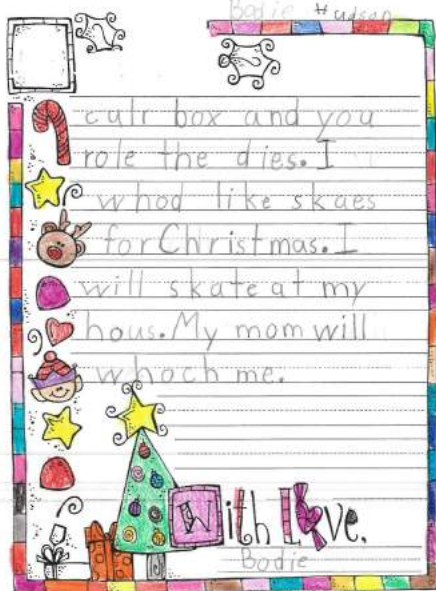 Bodie Hudson
culr box and you
role the dies. I
whod like skaes
for Christmas. I
will skate at my
hous. My mom will
whoch me.
With Love,
Bodie